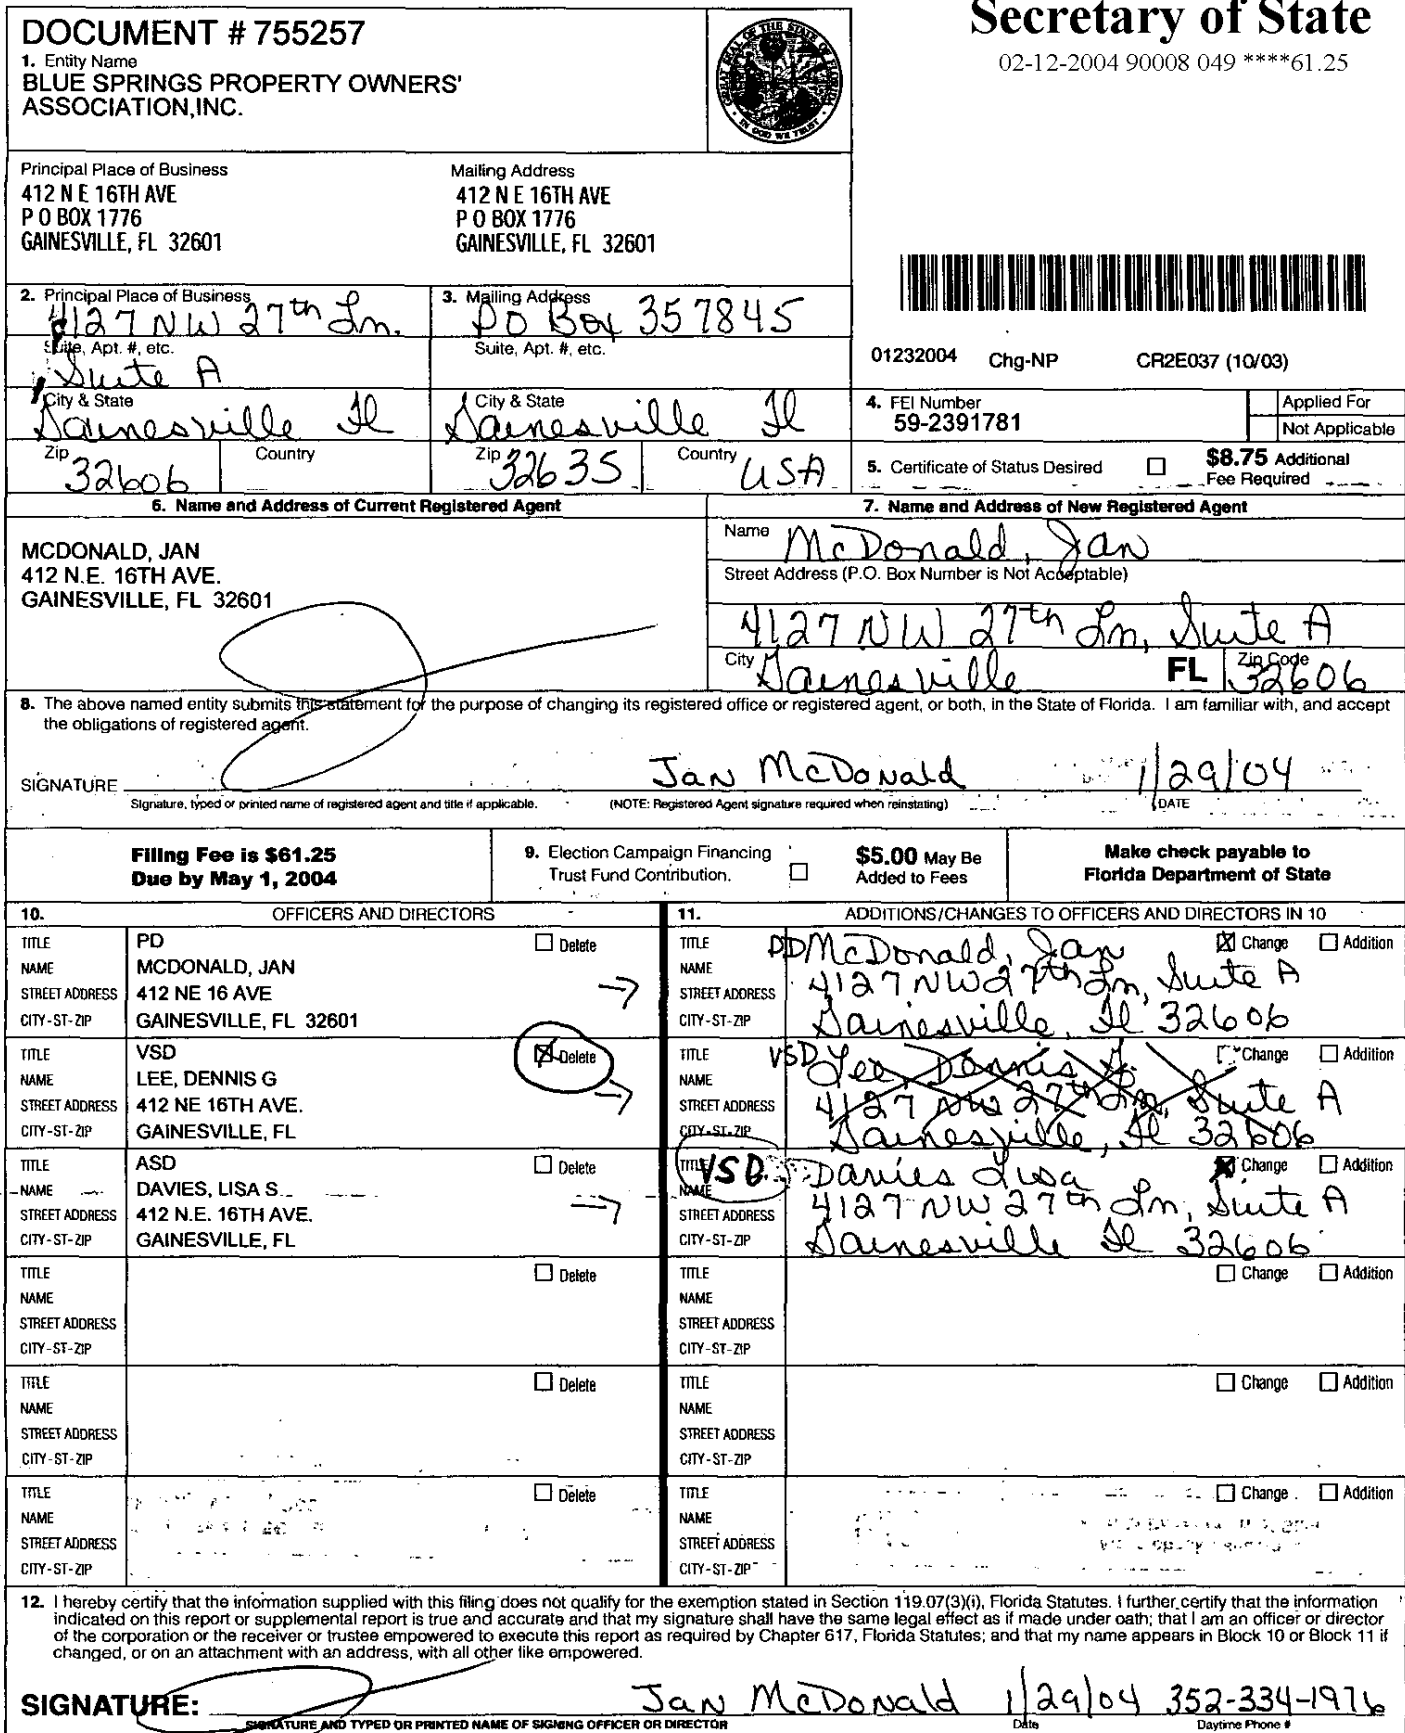 Secretary of State
02-12-2004 90008 049 ****61.25
DOCUMENT # 755257
1. Entity Name
BLUE SPRINGS PROPERTY OWNERS'
ASSOCIATION,INC.
GREAT SEAL OF THE STATE OF FLORIDA
IN GOD WE TRUST
Principal Place of Business
412 N E 16TH AVE
P O BOX 1776
GAINESVILLE, FL 32601
Mailing Address
412 N E 16TH AVE
P O BOX 1776
GAINESVILLE, FL 32601
2. Principal Place of Business
4127 NW 27th Ln.
Suite, Apt. #, etc.
Suite A
City & State
Gainesville Fl
Zip 32606
Country
3. Mailing Address
PO Box 357845
Suite, Apt. #, etc.
City & State
Gainesville Fl
Zip 32635
Country USA
01232004 Chg-NP CR2E037 (10/03)
4. FEI Number
59-2391781
Applied For
Not Applicable
5. Certificate of Status Desired ☐ $8.75 Additional
Fee Required
6. Name and Address of Current Registered Agent
MCDONALD, JAN
412 N.E. 16TH AVE.
GAINESVILLE, FL 32601
7. Name and Address of New Registered Agent
Name McDonald, Jan
Street Address (P.O. Box Number is Not Acceptable)
4127 NW 27th Ln, Suite A
City Gainesville FL Zip Code 32606
8. The above named entity submits this statement for the purpose of changing its registered office or registered agent, or both, in the State of Florida. I am familiar with, and accept
the obligations of registered agent.
SIGNATURE Jan McDonald 1/29/04
Signature, typed or printed name of registered agent and title if applicable. (NOTE: Registered Agent signature required when reinstating) DATE
Filing Fee is $61.25
Due by May 1, 2004
9. Election Campaign Financing
Trust Fund Contribution. ☐
$5.00 May Be
Added to Fees
Make check payable to
Florida Department of State
10. OFFICERS AND DIRECTORS
TITLE PD ☐ Delete
NAME MCDONALD, JAN
STREET ADDRESS 412 NE 16 AVE
CITY-ST-ZIP GAINESVILLE, FL 32601
TITLE VSD ☒ Delete
NAME LEE, DENNIS G
STREET ADDRESS 412 NE 16TH AVE.
CITY-ST-ZIP GAINESVILLE, FL
TITLE ASD ☐ Delete
NAME DAVIES, LISA S
STREET ADDRESS 412 N.E. 16TH AVE.
CITY-ST-ZIP GAINESVILLE, FL
TITLE ☐ Delete
NAME
STREET ADDRESS
CITY-ST-ZIP
TITLE ☐ Delete
NAME
STREET ADDRESS
CITY-ST-ZIP
TITLE ☐ Delete
NAME
STREET ADDRESS
CITY-ST-ZIP
11. ADDITIONS/CHANGES TO OFFICERS AND DIRECTORS IN 10
TITLE PD McDonald, Jan ☒ Change ☐ Addition
NAME
STREET ADDRESS 4127 NW 27th Ln, Suite A
CITY-ST-ZIP Gainesville, Fl 32606
TITLE VSD Lee, Dennis G. ☐ Change ☐ Addition
NAME
STREET ADDRESS 4127 NW 27th Ln, Suite A
CITY-ST-ZIP Gainesville, Fl 32606
TITLE VSD Davies Lisa ☒ Change ☐ Addition
NAME
STREET ADDRESS 4127 NW 27th Ln, Suite A
CITY-ST-ZIP Gainesville Fl 32606
TITLE ☐ Change ☐ Addition
NAME
STREET ADDRESS
CITY-ST-ZIP
TITLE ☐ Change ☐ Addition
NAME
STREET ADDRESS
CITY-ST-ZIP
TITLE ☐ Change ☐ Addition
NAME
STREET ADDRESS
CITY-ST-ZIP
12. I hereby certify that the information supplied with this filing does not qualify for the exemption stated in Section 119.07(3)(i), Florida Statutes. I further certify that the information
indicated on this report or supplemental report is true and accurate and that my signature shall have the same legal effect as if made under oath; that I am an officer or director
of the corporation or the receiver or trustee empowered to execute this report as required by Chapter 617, Florida Statutes; and that my name appears in Block 10 or Block 11 if
changed, or on an attachment with an address, with all other like empowered.
SIGNATURE: Jan McDonald 1/29/04 352-334-1976
SIGNATURE AND TYPED OR PRINTED NAME OF SIGNING OFFICER OR DIRECTOR Date Daytime Phone #